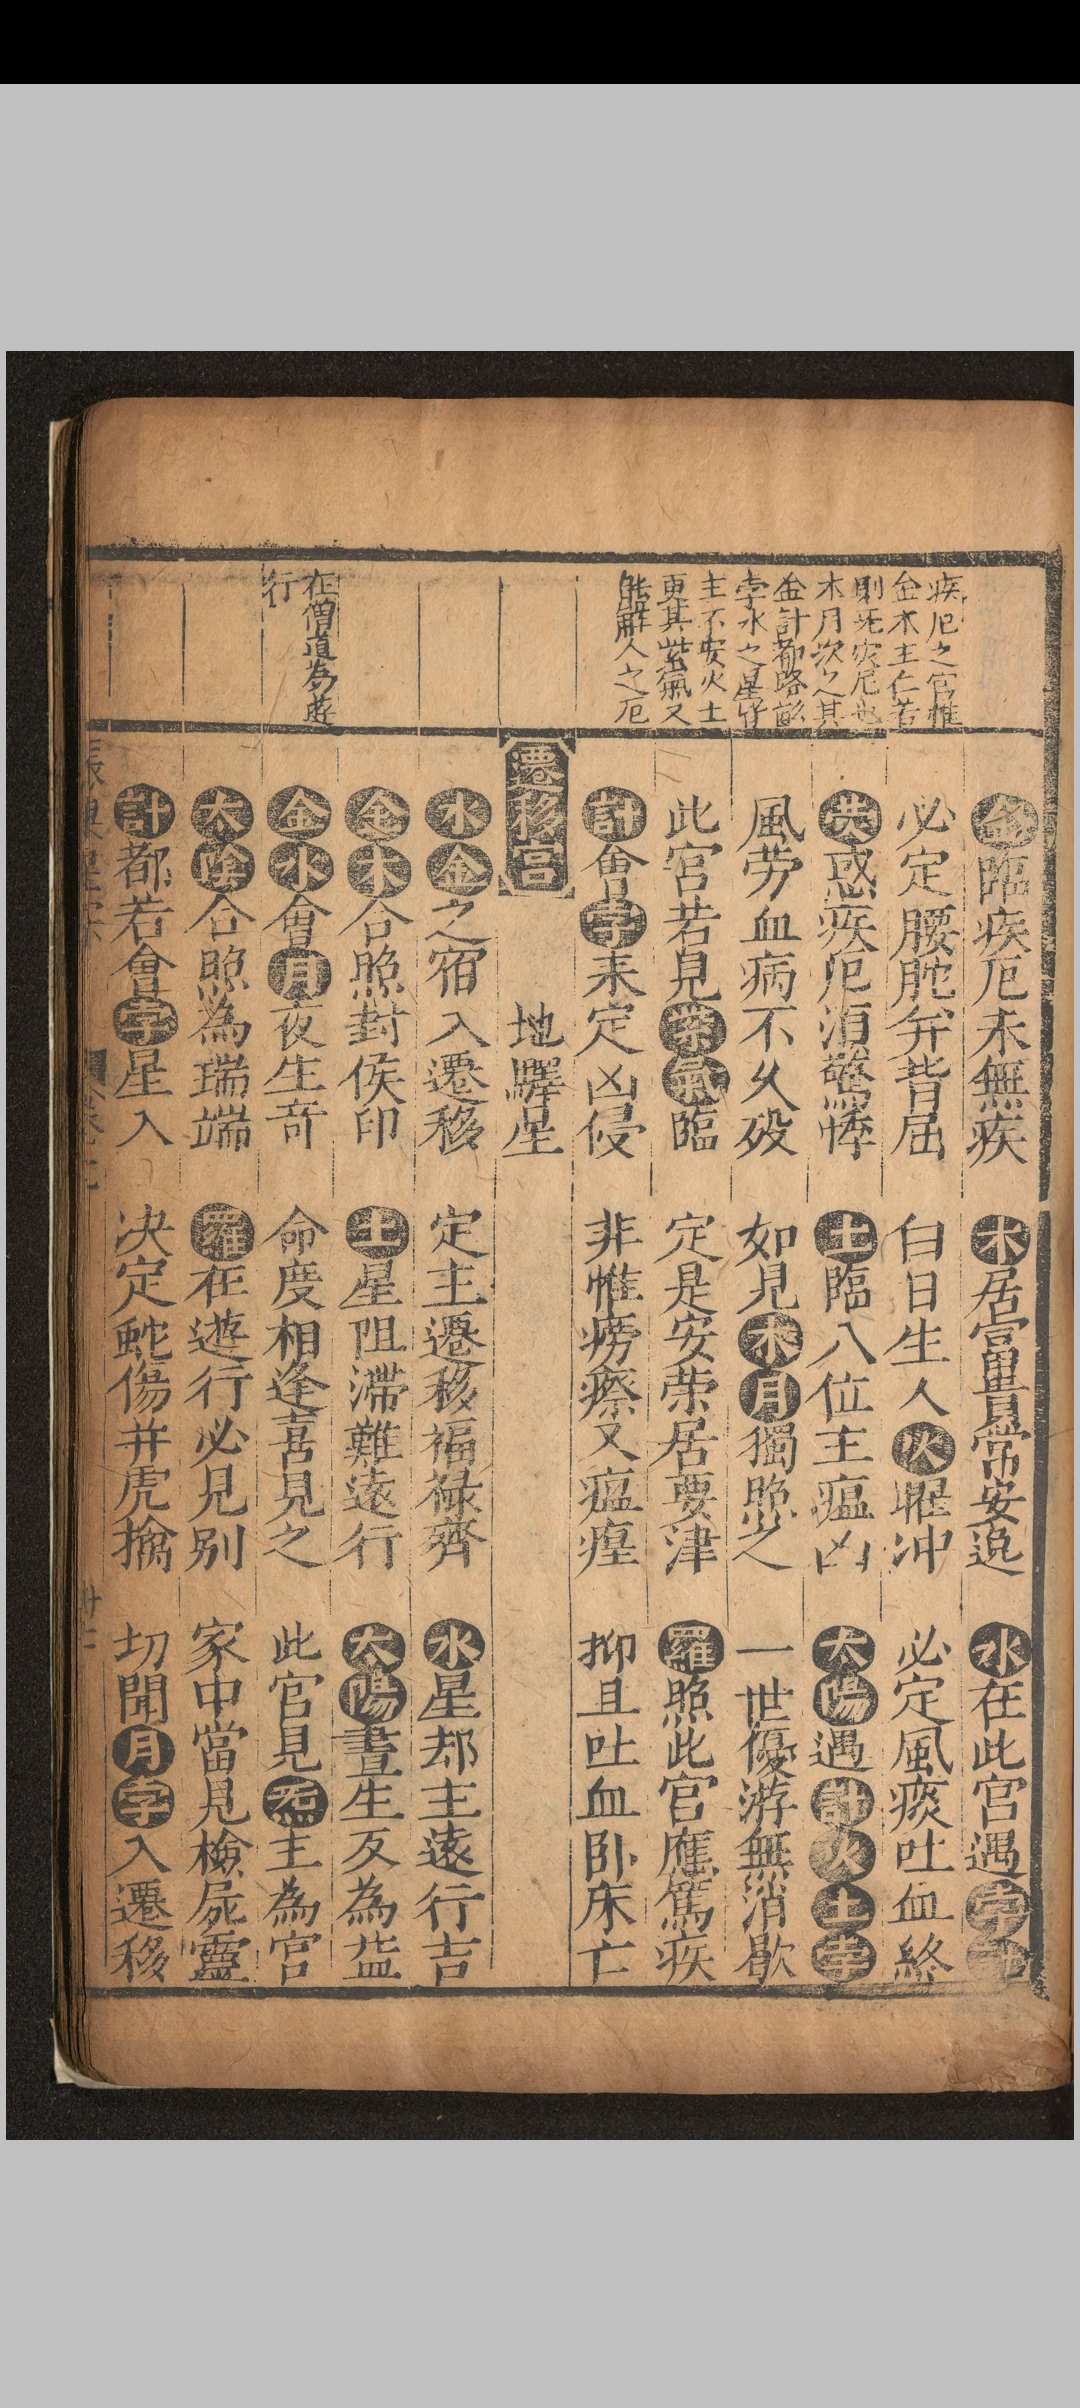 疾厄之宮惟
金木主仁若
則死灾厄也
木月次之其
金計都啓
孛水之星
主不安火土
更其紫氣又
能解人之厄
在僧道為遊
行
金臨疾厄末無疾 木居宮裏常安逸 水在此宮遇孛
必定腰駝并背屈 白日生人火曜冲 必定風痰吐血終
熒惑疾厄消驚悸 土臨八位主瘟凶 太陽遇計火土孛
風勞血病不久殁 如見木月獨照之 一世優游無消歇
此宮若見紫氣臨 定是安荣居要津 羅照此宮應篤疾
計會孛来定凶侵 非惟癆瘵又瘟㾮 抑且吐血卧床亡
遷移宮 地驛星
水金之宿入遷移 定主遷移福禄齊 水星却主遠行吉
金木合照封侯印 土星阻滯難遠行 太陽晝生反為益
金水會月夜生奇 命度相逢喜見之 此宮見炁主為官
太陰合照為瑞端 羅在遊行必見别 家中當見檢屍靈
計都若會孛星入 决定蛇傷并虎擒 切聞月孛入遷移